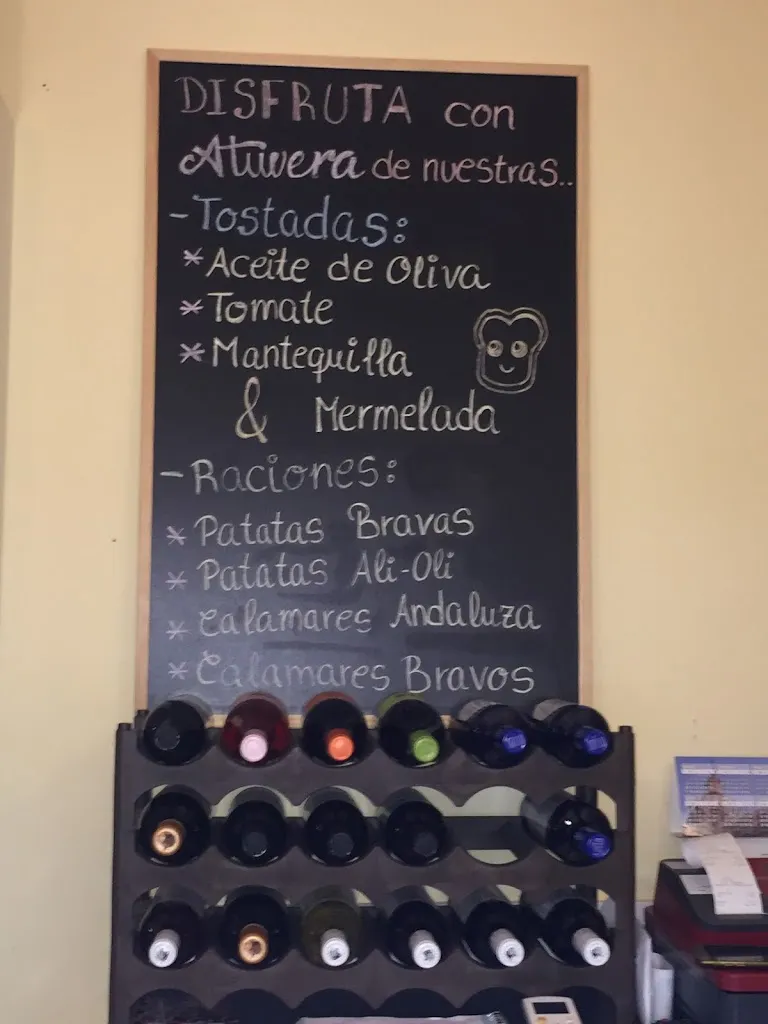 DISFRUTA con
Atuvera de nuestras..
- Tostadas:
* Aceite de Oliva
* Tomate
* Mantequilla
& Mermelada
- Raciones:
* Patatas Bravas
* Patatas Ali-Oli
* Calamares Andaluza
* Calamares Bravos